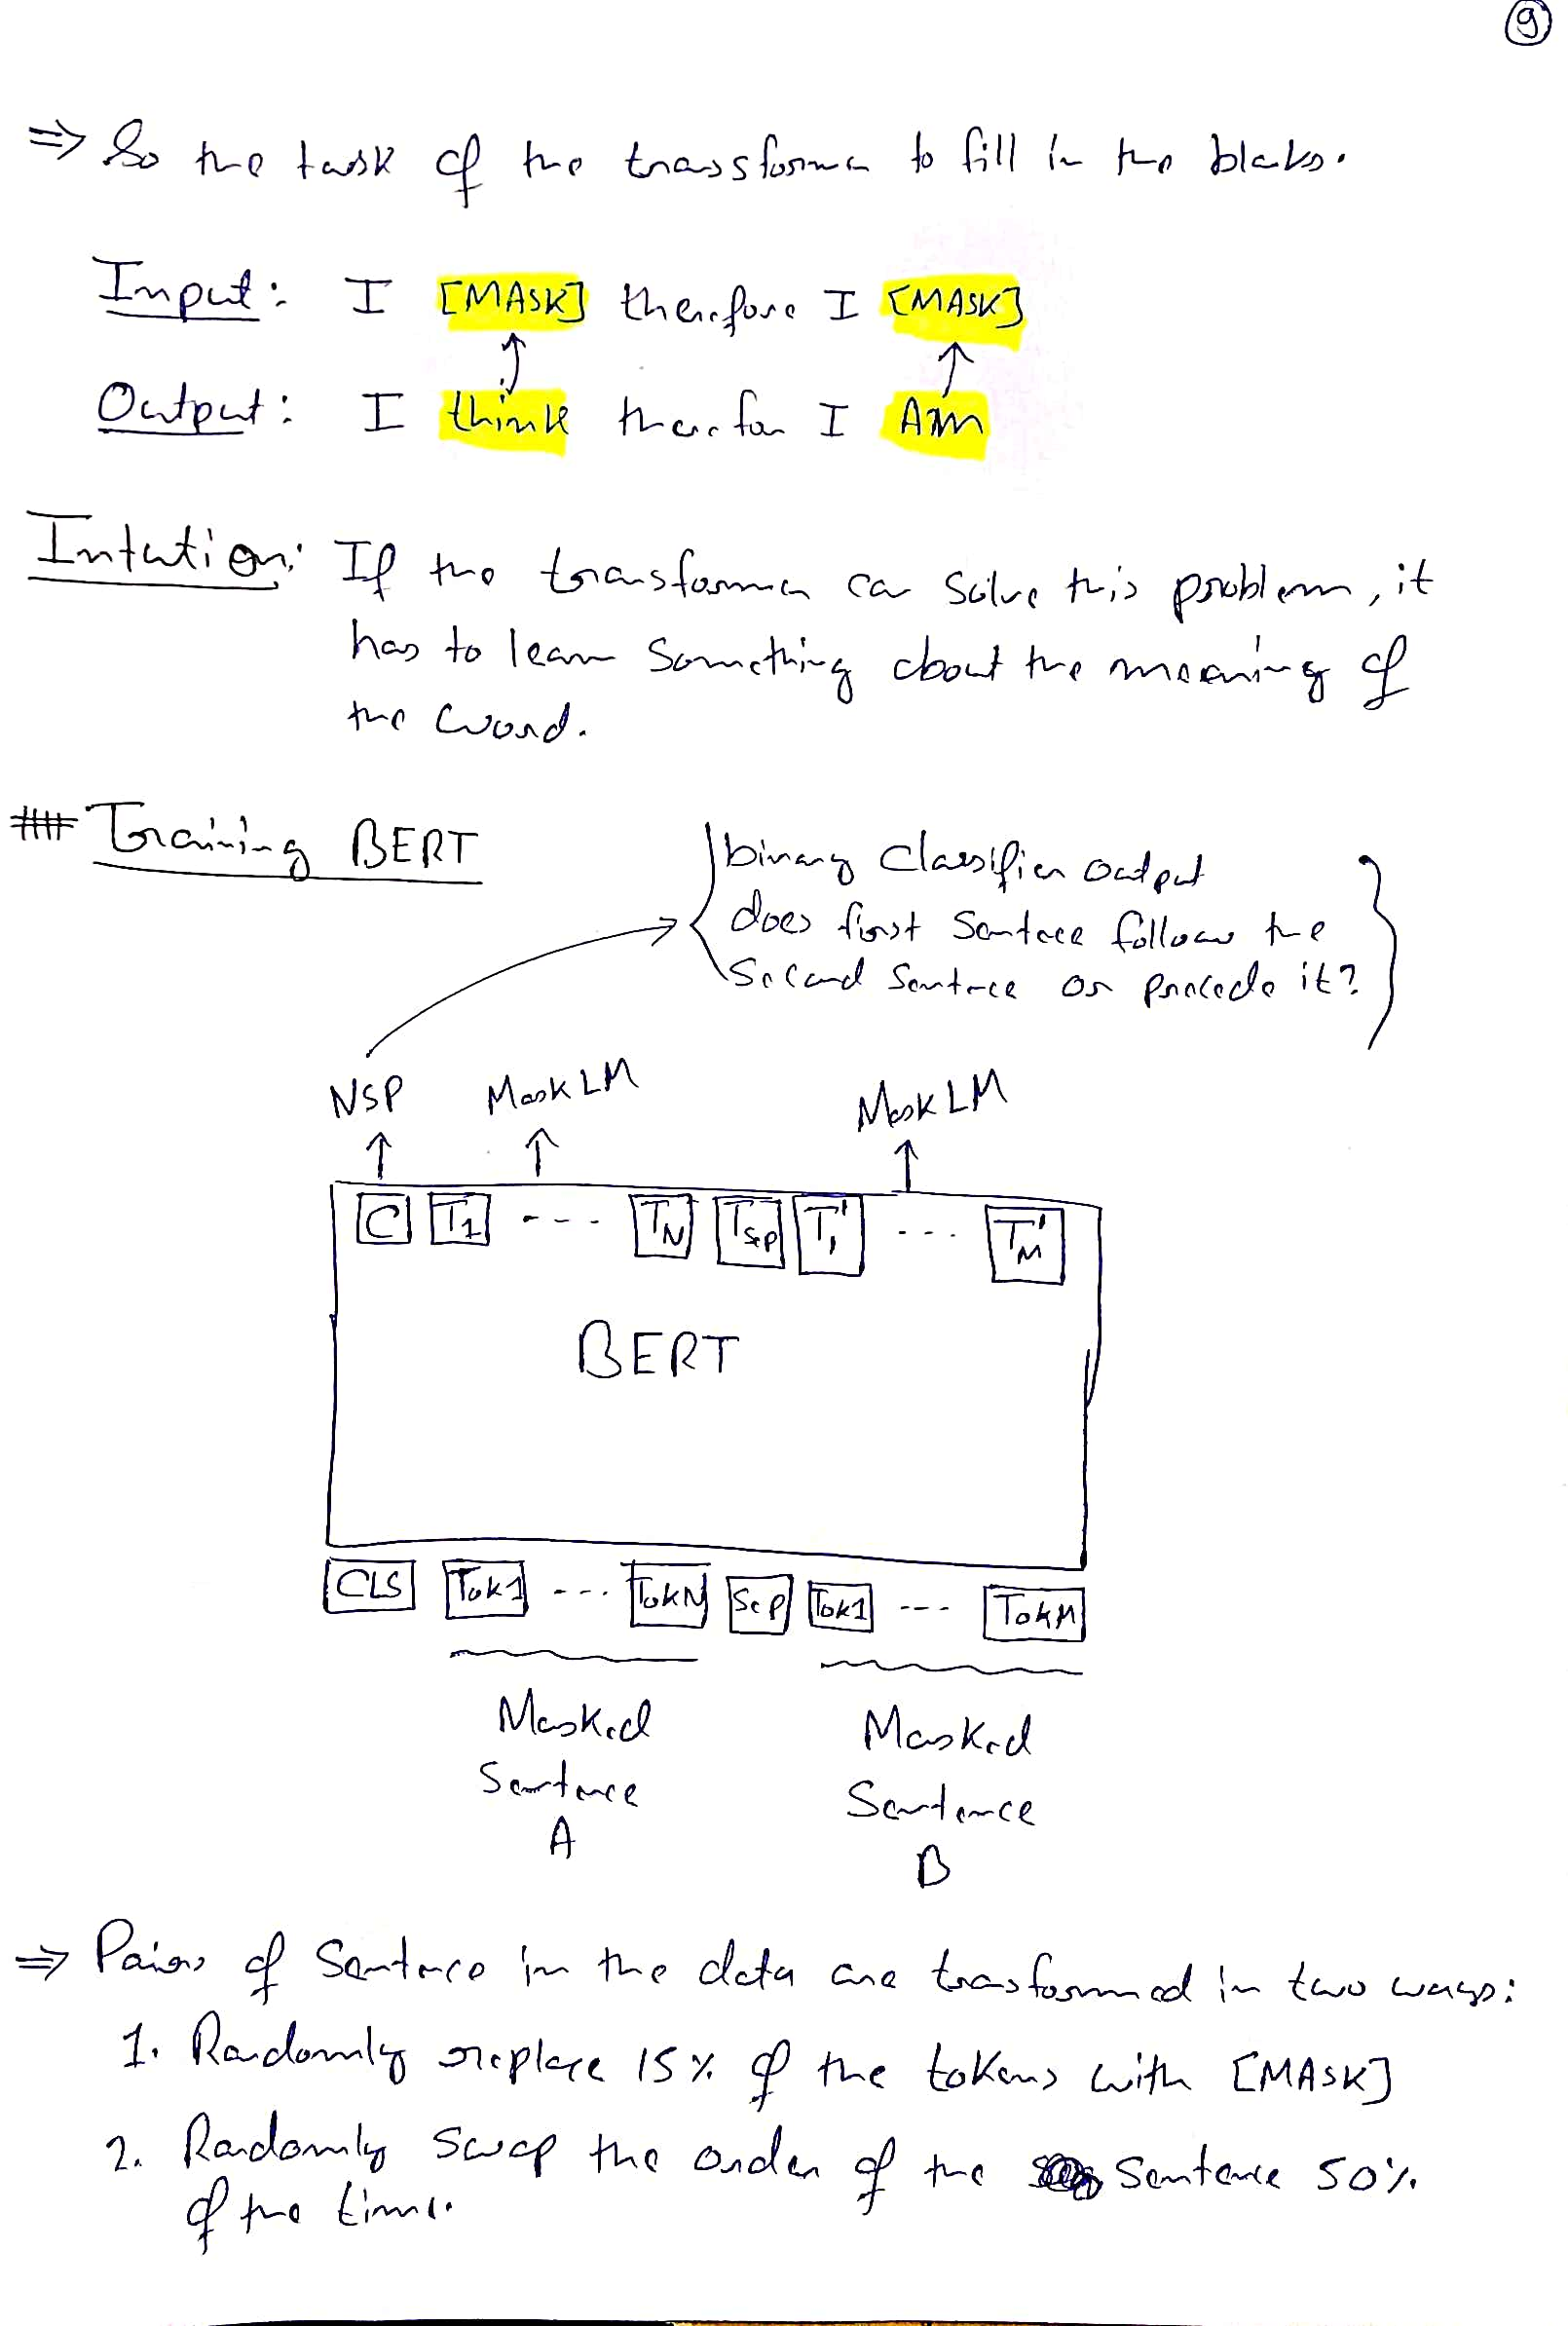 9
⇒ So the task of the transformer to fill in the blaks.
Input: I [MASK] therefore I [MASK]
Output: I think therefor I Am
Intution: If the transformer can solve this problem, it
has to learn something about the meaning of
the word.
## Training BERT
binary classifier output
does first sentence follow the
second sentence or precede it?
NSP Mask LM Mask LM
C T1 --- TN Tsep T1' --- TM'
BERT
CLS Tok1 --- TokN Sep Tok1 --- TokM
Masked Masked
Sentence Sentence
A B
⇒ Pairs of Sentence in the data are trasformed in two ways:
1. Randomly replace 15% of the tokens with [MASK]
2. Randomly swap the order of the Sentence 50%
of the time.